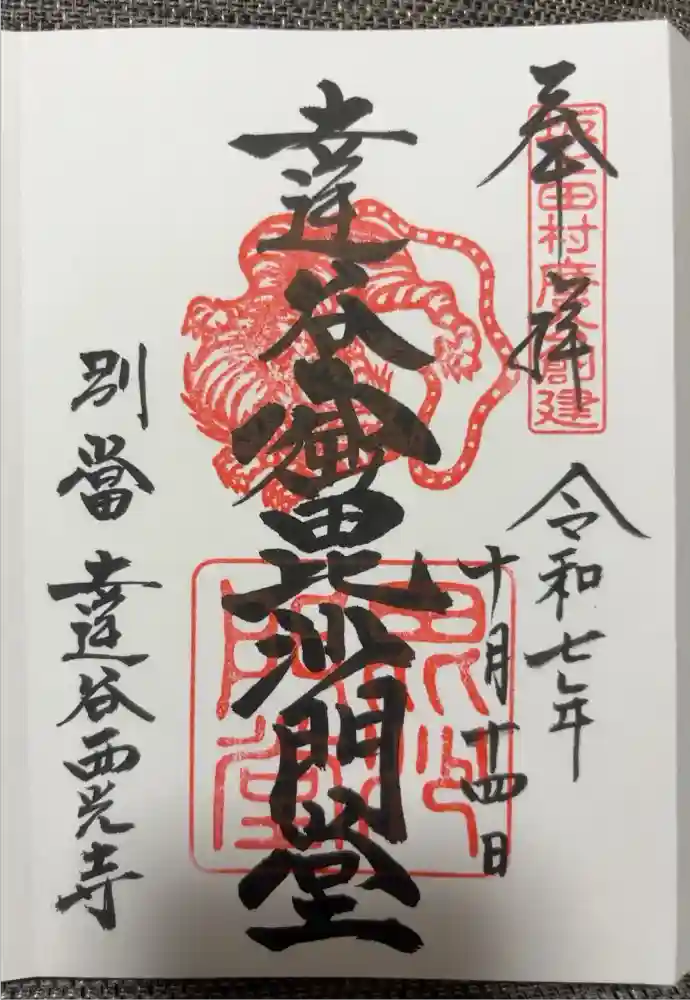 奉拝
坂上田村麿公創建
令和七年
十月十四日
達谷窟毘沙門堂
毘沙門堂
別當 達谷西光寺